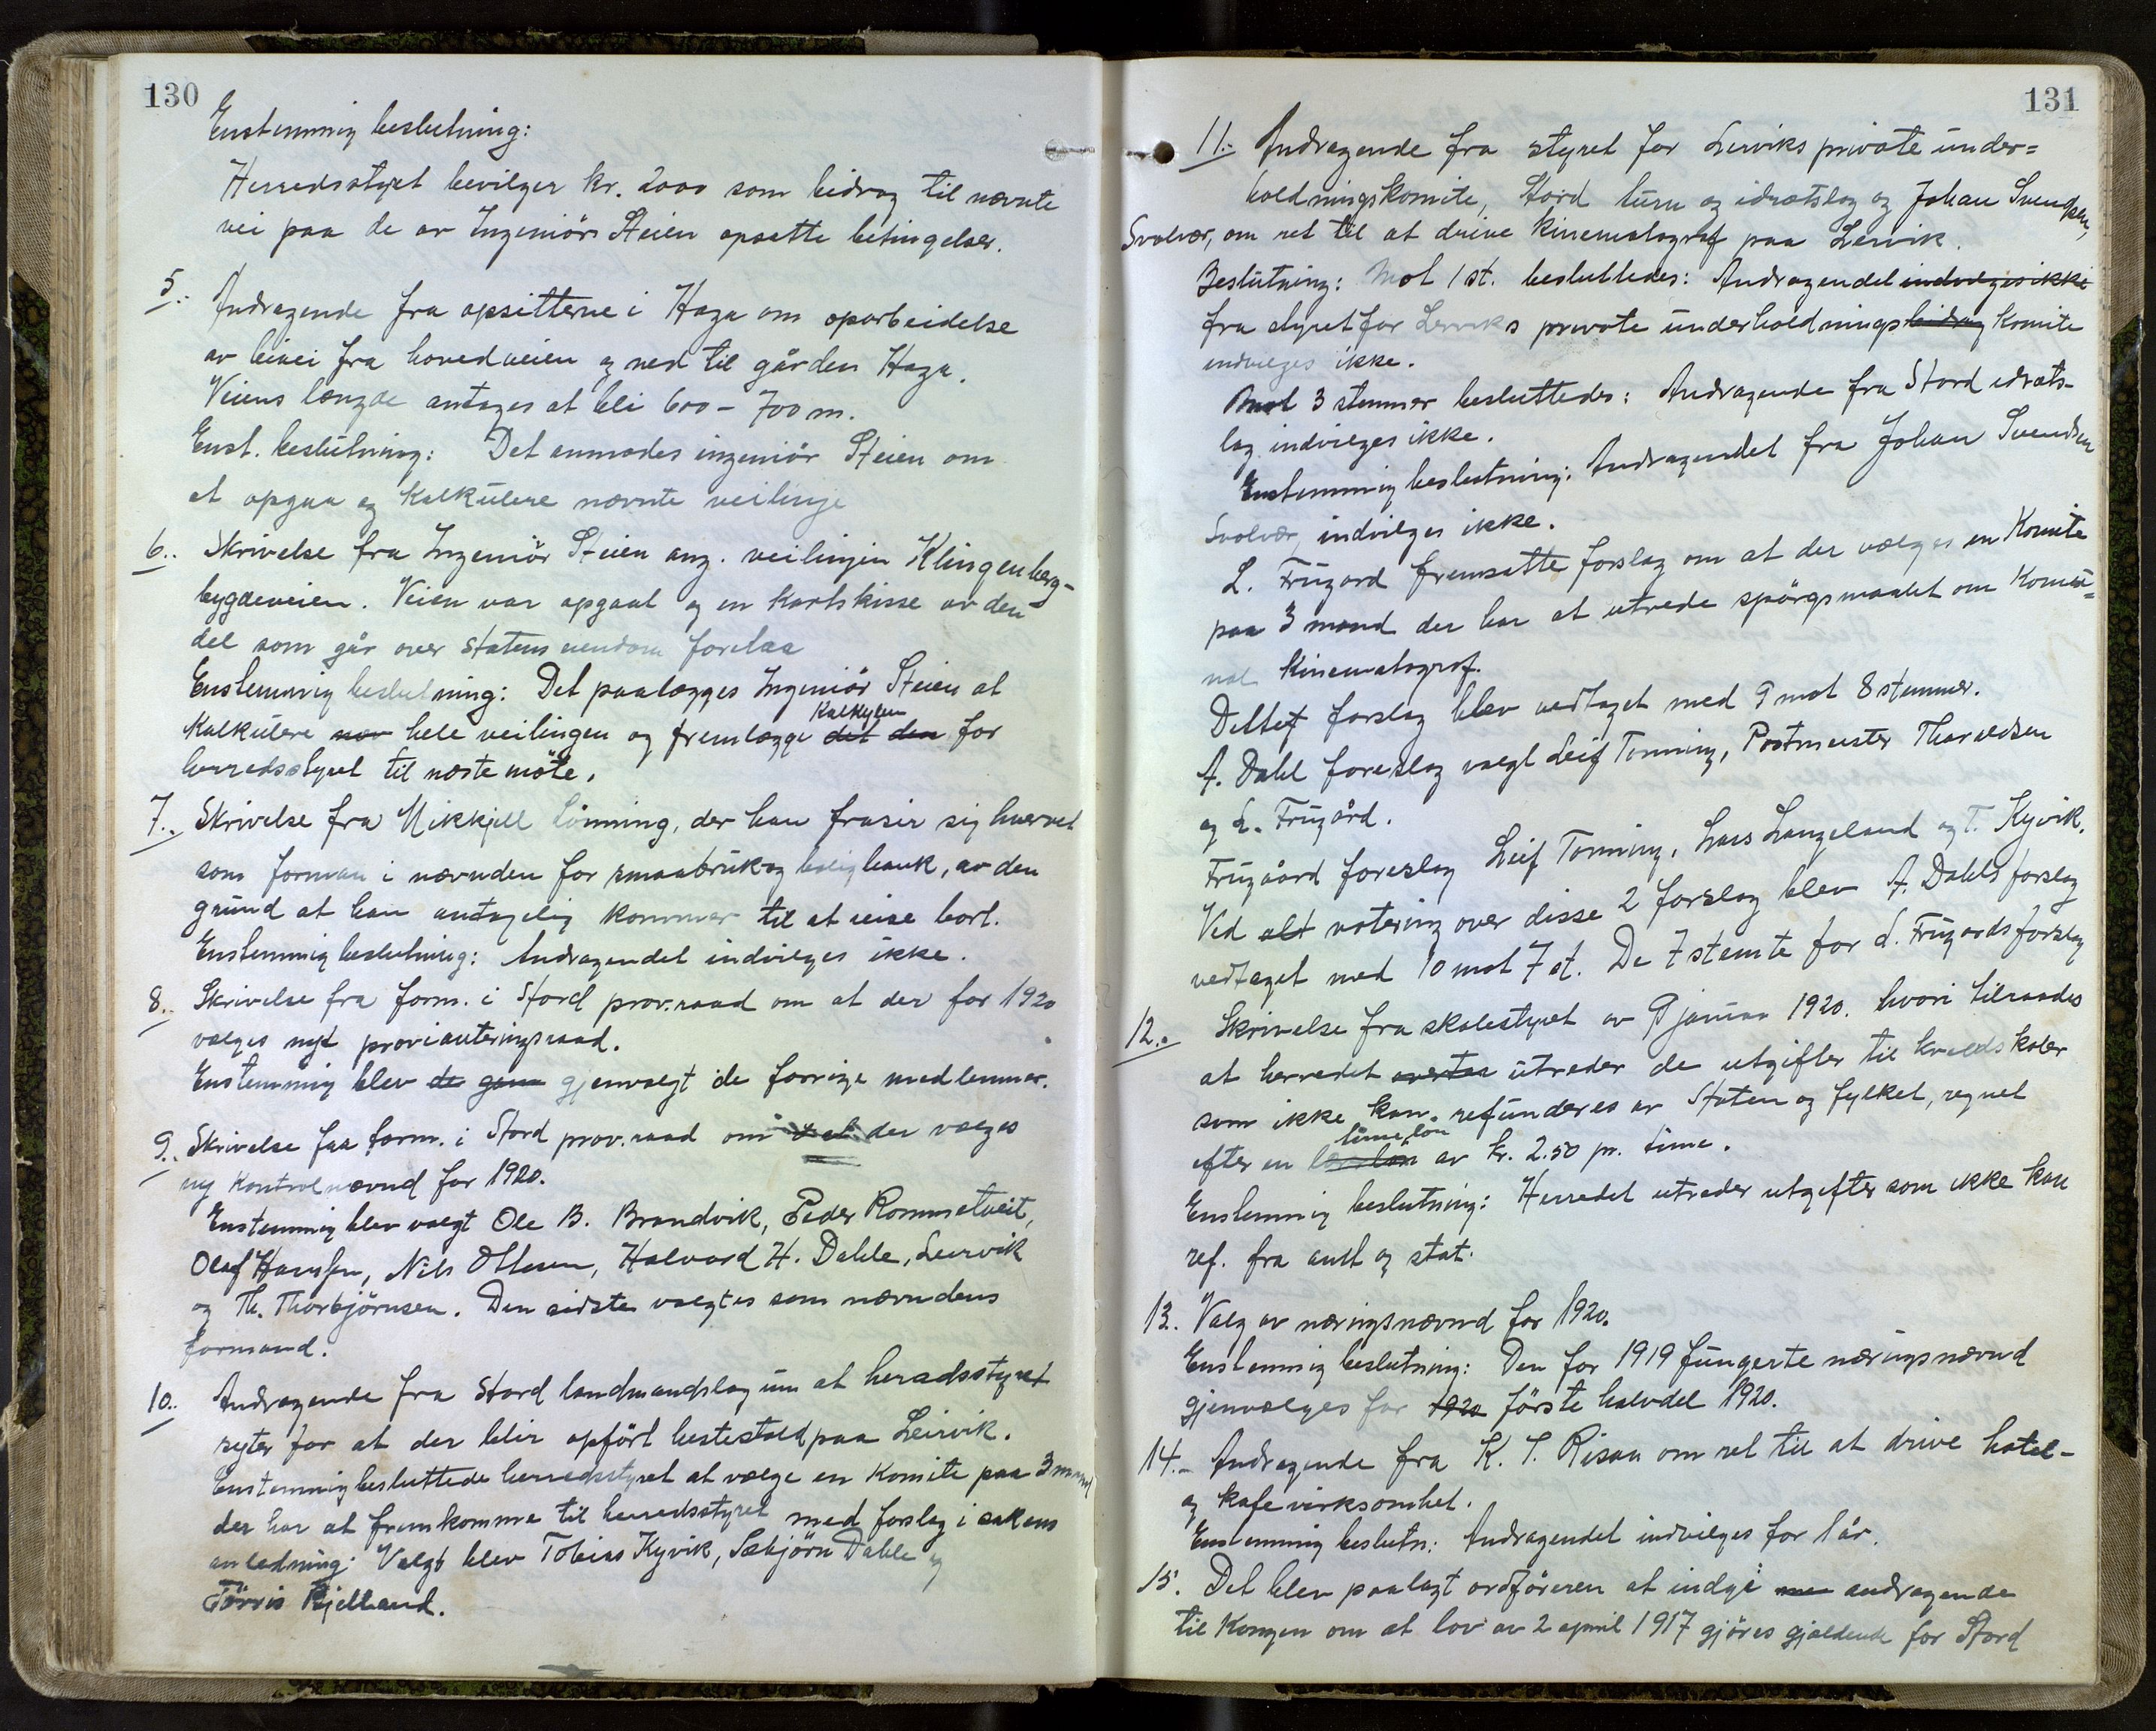 130
Enstemmig beslutning:
Herredsstyret bevilger kr. 2000 som bidrag til nævnte
vei paa de av Ingeniör Steien opsatte betingelser.
5. Andragende fra opsitterne i Haga om oparbeidelse
av bivei fra hovedveien og ned til gården Haga.
Veiens længde antages at bli 600 - 700 m.
Enst. beslutning: Det anmodes ingeniör Steien om
at opgaa og kalkulere nævnte veilinje
6. Skrivelse fra Ingeniör Steien ang. veilinjen Klingenberg-
bygdeveien. Veien var opgaat og en kartskisse av den
del som går over statens eiendom forelaa
Enstemmig beslutning: Det paalægges Ingeniör Steien at
kalkulere nav hele veilingen og fremlægge det den kalkylen for
herredsstyret til næste möte.
7. Skrivelse fra Mikkjell Lönning, der han frasier sig hvervet
som forman i nævnden for smaabruk og boligbank, av den
grund at han antagelig kommer til at reise bort.
Enstemmig beslutning: Andragendet indvilges ikke.
8. Skrivelse fra form. i Stord prov.raad om at der for 1920
vælges nyt provianteringsraad.
Enstemmig blev de gjen gjenvalgt de forrige medlemmer.
9. Skrivelse fra form. i Stord prov. raad om at der vælges
ny kontrolnævnd for 1920.
Enstemmig blev valgt Ole B. Brandvik, Peder Rommetveit,
Olaf Hansen, Nils Ottesen, Halvard H. Dahle, Leirvik
og Th. Thorbjörnsen. Den sidste valgtes som nævndens
formand.
10. Andragende fra Stord landmandslag um at heradsstyret
syter for at der blir opfört hestestald paa Leirvik.
Enstemmig besluttede herredsstyret at vælge en komite paa 3 mand
der har at fremkomme til herredsstyret med forslag i sakens
anledning: Valgt blev Tobias Kyvik, Sæbjörn Dahle og
Törris Bjelland.
131
11. Andragende fra styret for Lerviks private under=
holdningskomite, Stord turn og idrætslag og Johan Svendsen,
Svolvær, om ret til at drive kinematograf paa Lervik.
Beslutning: Mot 1 st. besluttedes: Andragendet indvilges ikke
fra styret for Lerviks private underholdningsbidrag komite
indvilges ikke.
Mot 3 stemmer besluttedes: Andragende fra Stord idræts-
lag indvilges ikke.
Enstemmig beslutning: Andragendet fra Johan Svendsen
Svolvær, indvilges ikke.
L. Frugard fremsatte forslag om at der vælges en komite
paa 3 mand der har at utrede spörgsmaalet om komu=
nal kinematograf.
Dettet forslag blev vedtaget med 9 mot 8 stemmer.
A. Dahl foreslog valgt Leif Tonning, Postmester Tharaldsen
og L. Frugård.
Frugaard foreslog Leif Tonning, Lars Langeland og T. Kyvik.
Ved alt votering over disse 2 forslag blev A. Dahls forslag
vedtaget med 10 mot 7 st. De 7 stemte for L. Frugards forslag
12. Skrivelse fra skolestyret av 9 januar 1920. hvori tilraades
at herredet overtar utreder de utgifter til kveldskoler
som ikke kan refunderes av Staten og fylket, regnet
efter en timelön av kr. 2.50 pr. time.
Enstemmig beslutning: Herredet utreder utgifter som ikke kan
ref. fra amt og stat.
13. Valg av næringsnævnd for 1920.
Enstemmig beslutning: Den for 1919 fungerte næringsnævnd
gjenvælges for 1920 förste halvdel 1920.
14. Andragende fra K. T. Risaa om ret til at drive hotel-
og kafevirksomhet.
Enstemmig beslutn: Andragendet indvilges for 1 år.
15. Det blev paalagt ordföreren at indgi andragende
til Kongen om at lov av 2 april 1917 gjöres gjældende for Stord